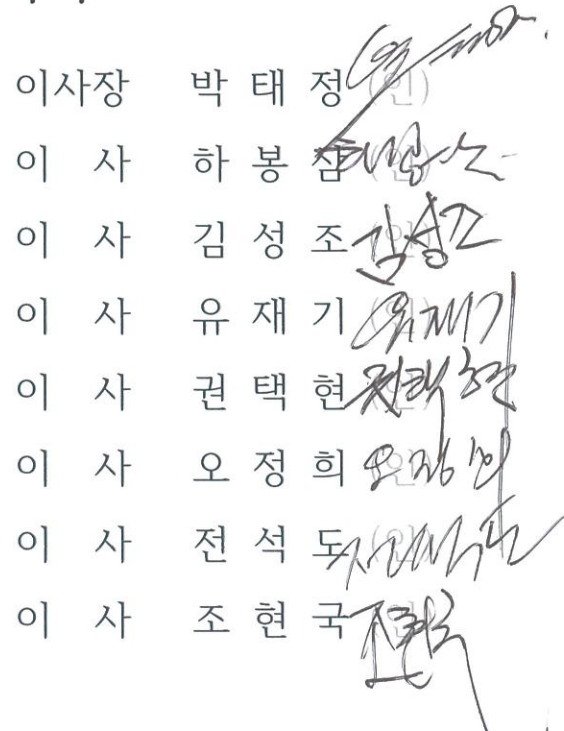 이사장 박 태 정 (인)
이 사 하 봉 삼 (인)
이 사 김 성 조 (인) 김성조
이 사 유 재 기 (인) 유재기
이 사 권 택 현 (인) 권택현
이 사 오 정 희 (인) 오정희
이 사 전 석 도 (인) 전석도
이 사 조 현 국 (인) 조현국